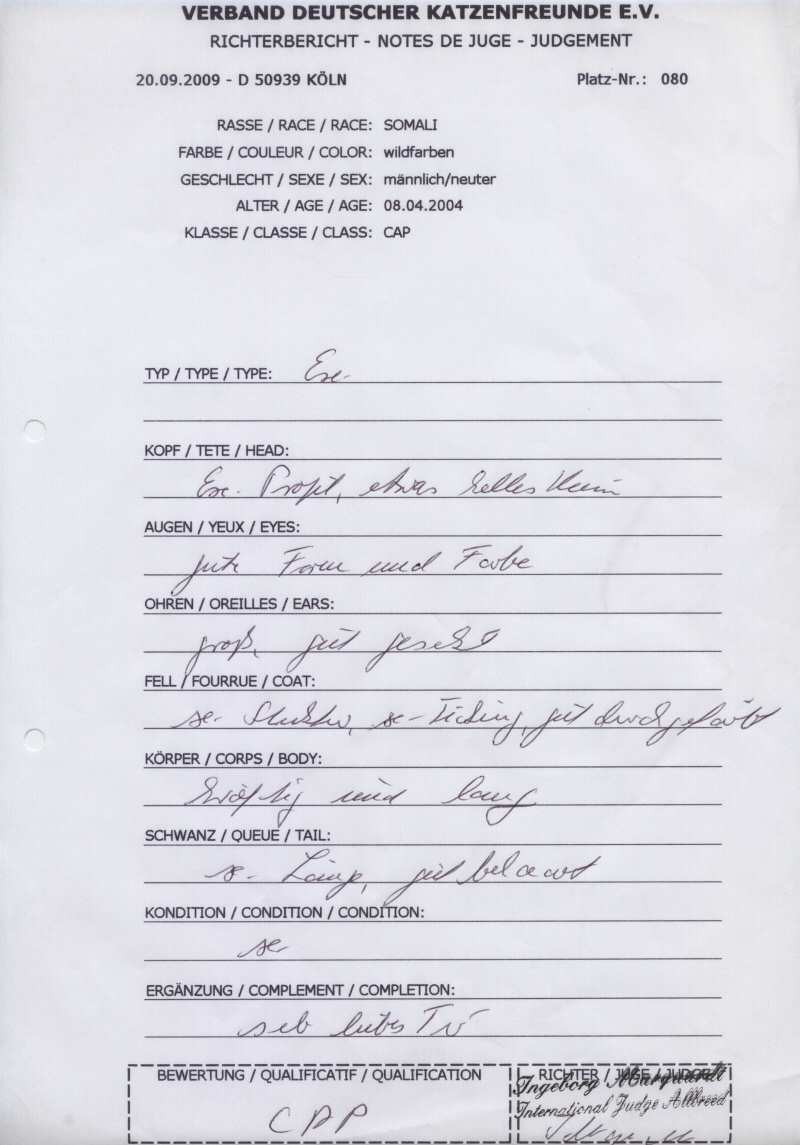 VERBAND DEUTSCHER KATZENFREUNDE E.V.
RICHTERBERICHT - NOTES DE JUGE - JUDGEMENT
20.09.2009 - D 50939 KÖLN Platz-Nr.: 080
RASSE / RACE / RACE: SOMALI
FARBE / COULEUR / COLOR: wildfarben
GESCHLECHT / SEXE / SEX: männlich/neuter
ALTER / AGE / AGE: 08.04.2004
KLASSE / CLASSE / CLASS: CAP
TYP / TYPE / TYPE: Exc.
KOPF / TETE / HEAD:
Exc. Profil, etwas helles Kinn
AUGEN / YEUX / EYES:
gute Form und Farbe
OHREN / OREILLES / EARS:
groß, gut gesetzt
FELL / FOURRUE / COAT:
se- Struktur, se- Ticking, gut durchgefärbt
KÖRPER / CORPS / BODY:
kräftig und lang
SCHWANZ / QUEUE / TAIL:
se- Länge, gut behaart
KONDITION / CONDITION / CONDITION:
se
ERGÄNZUNG / COMPLEMENT / COMPLETION:
seh liebes Tier
BEWERTUNG / QUALIFICATIF / QUALIFICATION RICHTER / JUGE / JUDGE
Ingeborg Marquardt
International Judge Allbreed
CAP